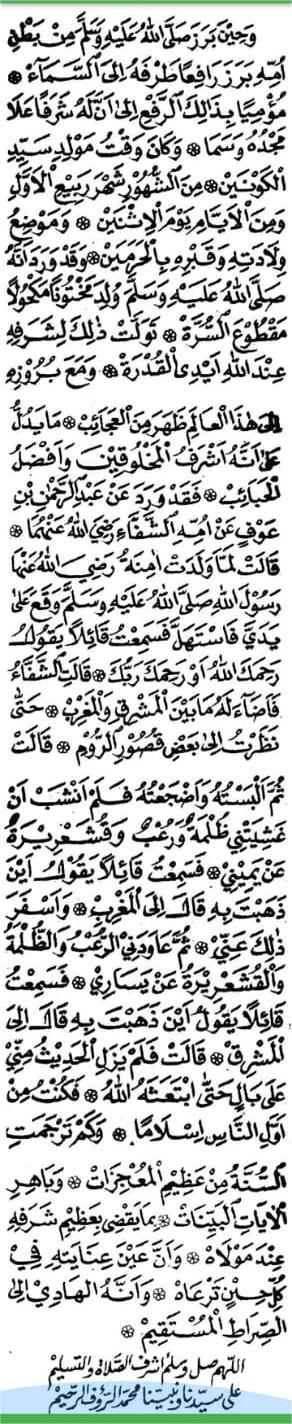 وَحِيْنَ بَرَزَ صَلَّى اللهُ عَلَيْهِ وَسَلَّمَ مِنْ بَطْنِ
اُمِّهِ بَرَزَ رَافِعًا طَرْفَهُ اِلَى السَّمَآءْ ۞
مُؤْمِيًا بِذَالِكَ الرَّفْعِ اِلَى اَنَّ لَهُ شَرَفًا عَلَا
مَجْدُهُ وَسَمَا ۞ وَكَانَ وَقْتُ مَوْلِدِ سَيِّدِ
الْكَوْنَيْنِ ۞ مِنَ الشُّهُوْرِ شَهْرَ رَبِيْعِ الْاَوَّلِ
وَمِنَ الْاَيَّامِ يَوْمَ الْاِثْنَيْنِ ۞ وَمَوْضِعُ
وِلَادَتِهِ وَقَبْرِهِ بِالْحَرَمَيْنِ ۞ وَقَدْ وَرَدَ اَنَّهُ
صَلَّى اللهُ عَلَيْهِ وَسَلَّمَ وُلِدَ مَخْتُوْنًا مَكْحُوْلًا
مَقْطُوْعَ السُّرَّةِ ۞ تَوَلَّتْ ذٰلِكَ لِشَرَفِهِ
عِنْدَ اللهِ اَيْدِى الْقُدْرَةِ ۞ وَمَعَ بُرُوْزِهِ
اِلَى هٰذَا الْعَالَمِ ظَهَرَ مِنَ الْعَجَائِبْ ۞ مَا يَدُلُّ
عَلَى اَنَّهُ اَشْرَفُ الْمَخْلُوْقِيْنَ وَاَفْضَلُ
الْحَبَائِبْ ۞ فَقَدْ وَرَدَ عَنْ عَبْدِ الرَّحْمٰنِ بْنِ
عَوْفٍ عَنْ اُمِّهِ الشَّفَّاءِ رَضِيَ اللهُ عَنْهُمَا ۞
قَالَتْ لَمَّا وَلَدَتْ اٰمِنَةُ رَضِيَ اللهُ عَنْهَا
رَسُوْلَ اللهِ صَلَّى اللهُ عَلَيْهِ وَسَلَّمَ وَقَعَ عَلَى
يَدَيَّ فَاسْتَهَلَّ فَسَمِعْتُ قَائِلًا يَقُوْلُ
رَحِمَكَ اللهُ اَوْ رَحِمَكَ رَبُّكَ ۞ قَالَتِ الشَّفَّاءُ
فَاَضَآءَ لَهُ مَا بَيْنَ الْمَشْرِقِ وَالْمَغْرِبْ ۞ حَتَّى
نَظَرْتُ اِلَى بَعْضِ قُصُوْرِ الرُّوْمْ ۞ قَالَتْ
ثُمَّ اَلْبَسْتُهُ وَاَضْجَعْتُهُ فَلَمْ اَنْشَبْ اَنْ
غَشِيَتْنِيْ ظُلْمَةٌ وَرُعْبٌ وَقُشَعْرِيْرَةٌ
عَنْ يَمِيْنِيْ ۞ فَسَمِعْتُ قَائِلًا يَقُوْلُ اَيْنَ
ذَهَبْتَ بِهِ قَالَ اِلَى الْمَغْرِبْ ۞ وَاَسْفَرَ
ذٰلِكَ عَنِّيْ ۞ ثُمَّ عَاوَدَنِى الرُّعْبُ وَالظُّلْمَةُ
وَالْقُشَعْرِيْرَةُ عَنْ يَسَارِيْ ۞ فَسَمِعْتُ
قَائِلًا يَقُوْلُ اَيْنَ ذَهَبْتَ بِهِ قَالَ اِلَى
الْمَشْرِقْ ۞ قَالَتْ فَلَمْ يَزَلِ الْحَدِيْثُ مِنِّيْ
عَلَى بَالٍ حَتَّى ابْتَعَثَهُ اللهُ ۞ فَكُنْتُ مِنْ
اَوَّلِ النَّاسِ اِسْلَامًا ۞ وَكَمْ تَرْجَمَتِ
السُّنَّةُ مِنْ عَظِيْمِ الْمُعْجِزَاتْ ۞ وَبَاهِرِ
الْاٰيَاتِ الْبَيِّنَاتْ ۞ بِمَا يَقْضِى بِعَظِيْمِ شَرَفِهِ
عِنْدَ مَوْلَاهْ ۞ وَاَنَّ عَيْنَ عِنَايَتِهِ فِيْ
كُلِّ حِيْنٍ تَرْعَاهْ ۞ وَاَنَّهُ الْهَادِيْ اِلَى
الصِّرَاطِ الْمُسْتَقِيْمْ ۞
اللهم صل وسلم اشرف الصلاة والتسليم
على سيدنا ونبينا محمد الرؤف الرحيم